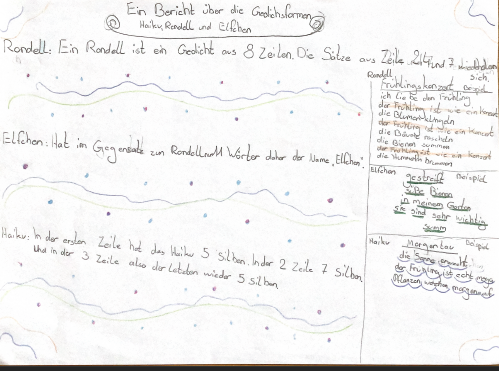 Ein Bericht über die Gedichsformen
Haiku, Rondell und Elfchen
Rondell: Ein Rondell ist ein Gedicht aus 8 Zeilen. Die Sätze aus Zeile 2,4, und 7 wiederholen
sich.
Rondell Beispiel
Frühlingskonzert
ich liebe den Frühling
der Frühling ist wie ein Konzert
die Blumen klingeln
der Frühling ist wie ein Konzert
die Bäume rascheln
die Bienen summen
der Frühling ist wie ein Konzert
die Hummeln brummen
Elfchen: Hat im Gegensatz zum Rondell nur 11 Wörter daher der Name „Elfchen“
Elfchen Beispiel
gestreift
süße Bienen
in meinem Garten
sie sind sehr wichtig
summ
Haiku: In der ersten Zeile hat das Haiku 5 Silben. In der 2 Zeile 7 Silben
Und in der 3 Zeile also der Letzten wieder 5 Silben
Haiku Beispiel
Morgentau
die Sonne erwacht
der Frühling ist echt
Pflanzen wachen